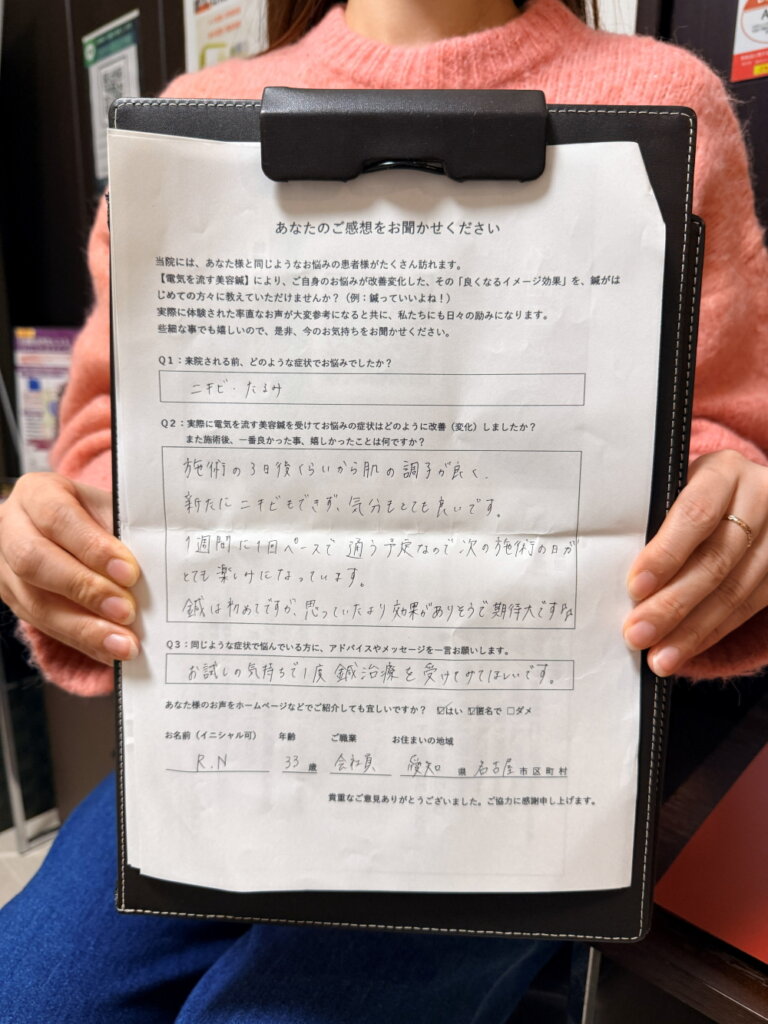 あなたのご感想をお聞かせください
当院には、あなた様と同じようなお悩みの患者様がたくさん訪れます。
【電気を流す美容鍼】により、ご自身のお悩みが改善変化した、その「良くなるイメージ効果」を、鍼がは
じめての方々に教えていただけませんか？（例：鍼っていいよね！）
実際に体験された率直なお声が大変参考になると共に、私たちにも日々の励みになります。
些細な事でも嬉しいので、是非、今のお気持ちをお聞かせください。
Q1：来院される前、どのような症状でお悩みでしたか？
ニキビ・たるみ
Q2：実際に電気を流す美容鍼を受けてお悩みの症状はどのように改善（変化）しましたか？
また施術後、一番良かった事、嬉しかったことは何ですか？
施術の3日後くらいから肌の調子が良く、
新たにニキビもできず、気分もとても良いです。
1週間に1回ペースで通う予定なので次の施術の日が
とても楽しみになっています。
鍼は初めてですが、思っていたより効果がありそうで期待大です♪♪
Q3：同じような症状で悩んでいる方に、アドバイスやメッセージを一言お願いします。
お試しの気持ちで1度鍼治療を受けてみてほしいです。
あなた様のお声をホームページなどでご紹介しても宜しいですか？ ☑はい ☑匿名で ☐ダメ
お名前（イニシャル可） 年齢 ご職業 お住まいの地域
R.N 33 歳 会社員 愛知 県 名古屋 市区町村
貴重なご意見ありがとうございました。ご協力に感謝申し上げます。